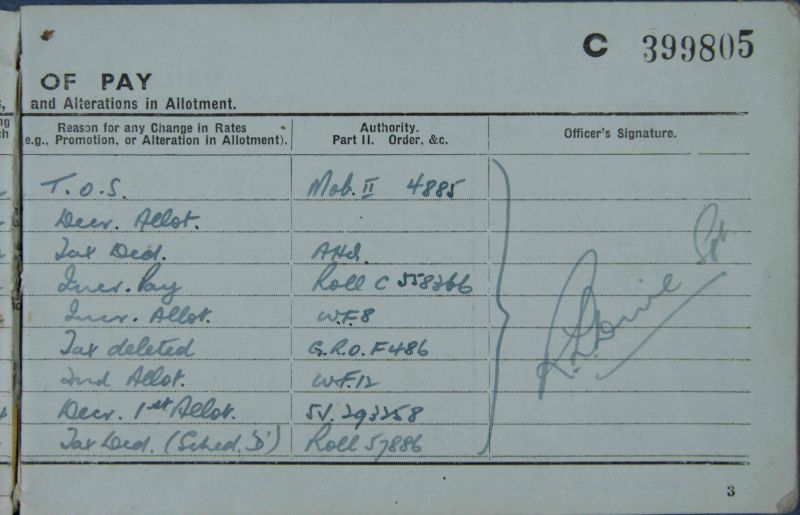 C 399805
OF PAY
and Alterations in Allotment.
Reason for any Change in Rates
e.g., Promotion, or Alteration in Allotment).
Authority.
Part II. Order, &c.
Officer's Signature.
T.O.S. Mob. II 4885
Decr. Allot.
Tax Ded. AHQ.
Incr. Pay Roll C 558366
Incr. Allot. W.F.8
Tax deleted G.R.O. F486
2nd Allot. W.F.12
Decr. 1st Allot. SV. 293258
Tax Ded. (Sched. 'D') Roll 57886
3